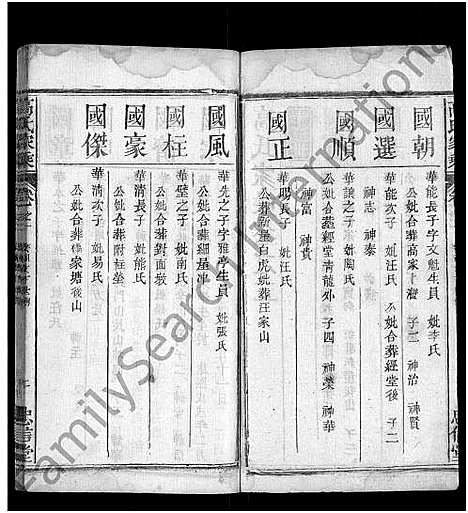 國朝
華能長子字文魁生員 妣李氏
公妣合葬高家 子二 神治 神賢
國選
華能次子 妣汪氏 公妣合葬經堂後 子二
神志 神泰
國順
華讓之子 妣陶氏
公妣合葬經堂青龍外 子四 神榮 神華
神富 神貴
國正
華賜長子 妣汪氏
公葬 白虎 妣葬汪家山
國風
華先之子字雅亭生員 妣張氏
公妣合葬
國柱
華璧之子 妣南氏
公妣合葬對面
國豪
華清長子 妣熊氏
公妣合葬附柱塋
國傑
華清次子 妣易氏
公妣合葬 家塘後山
高氏家乘
忠信堂
FamilySearch International